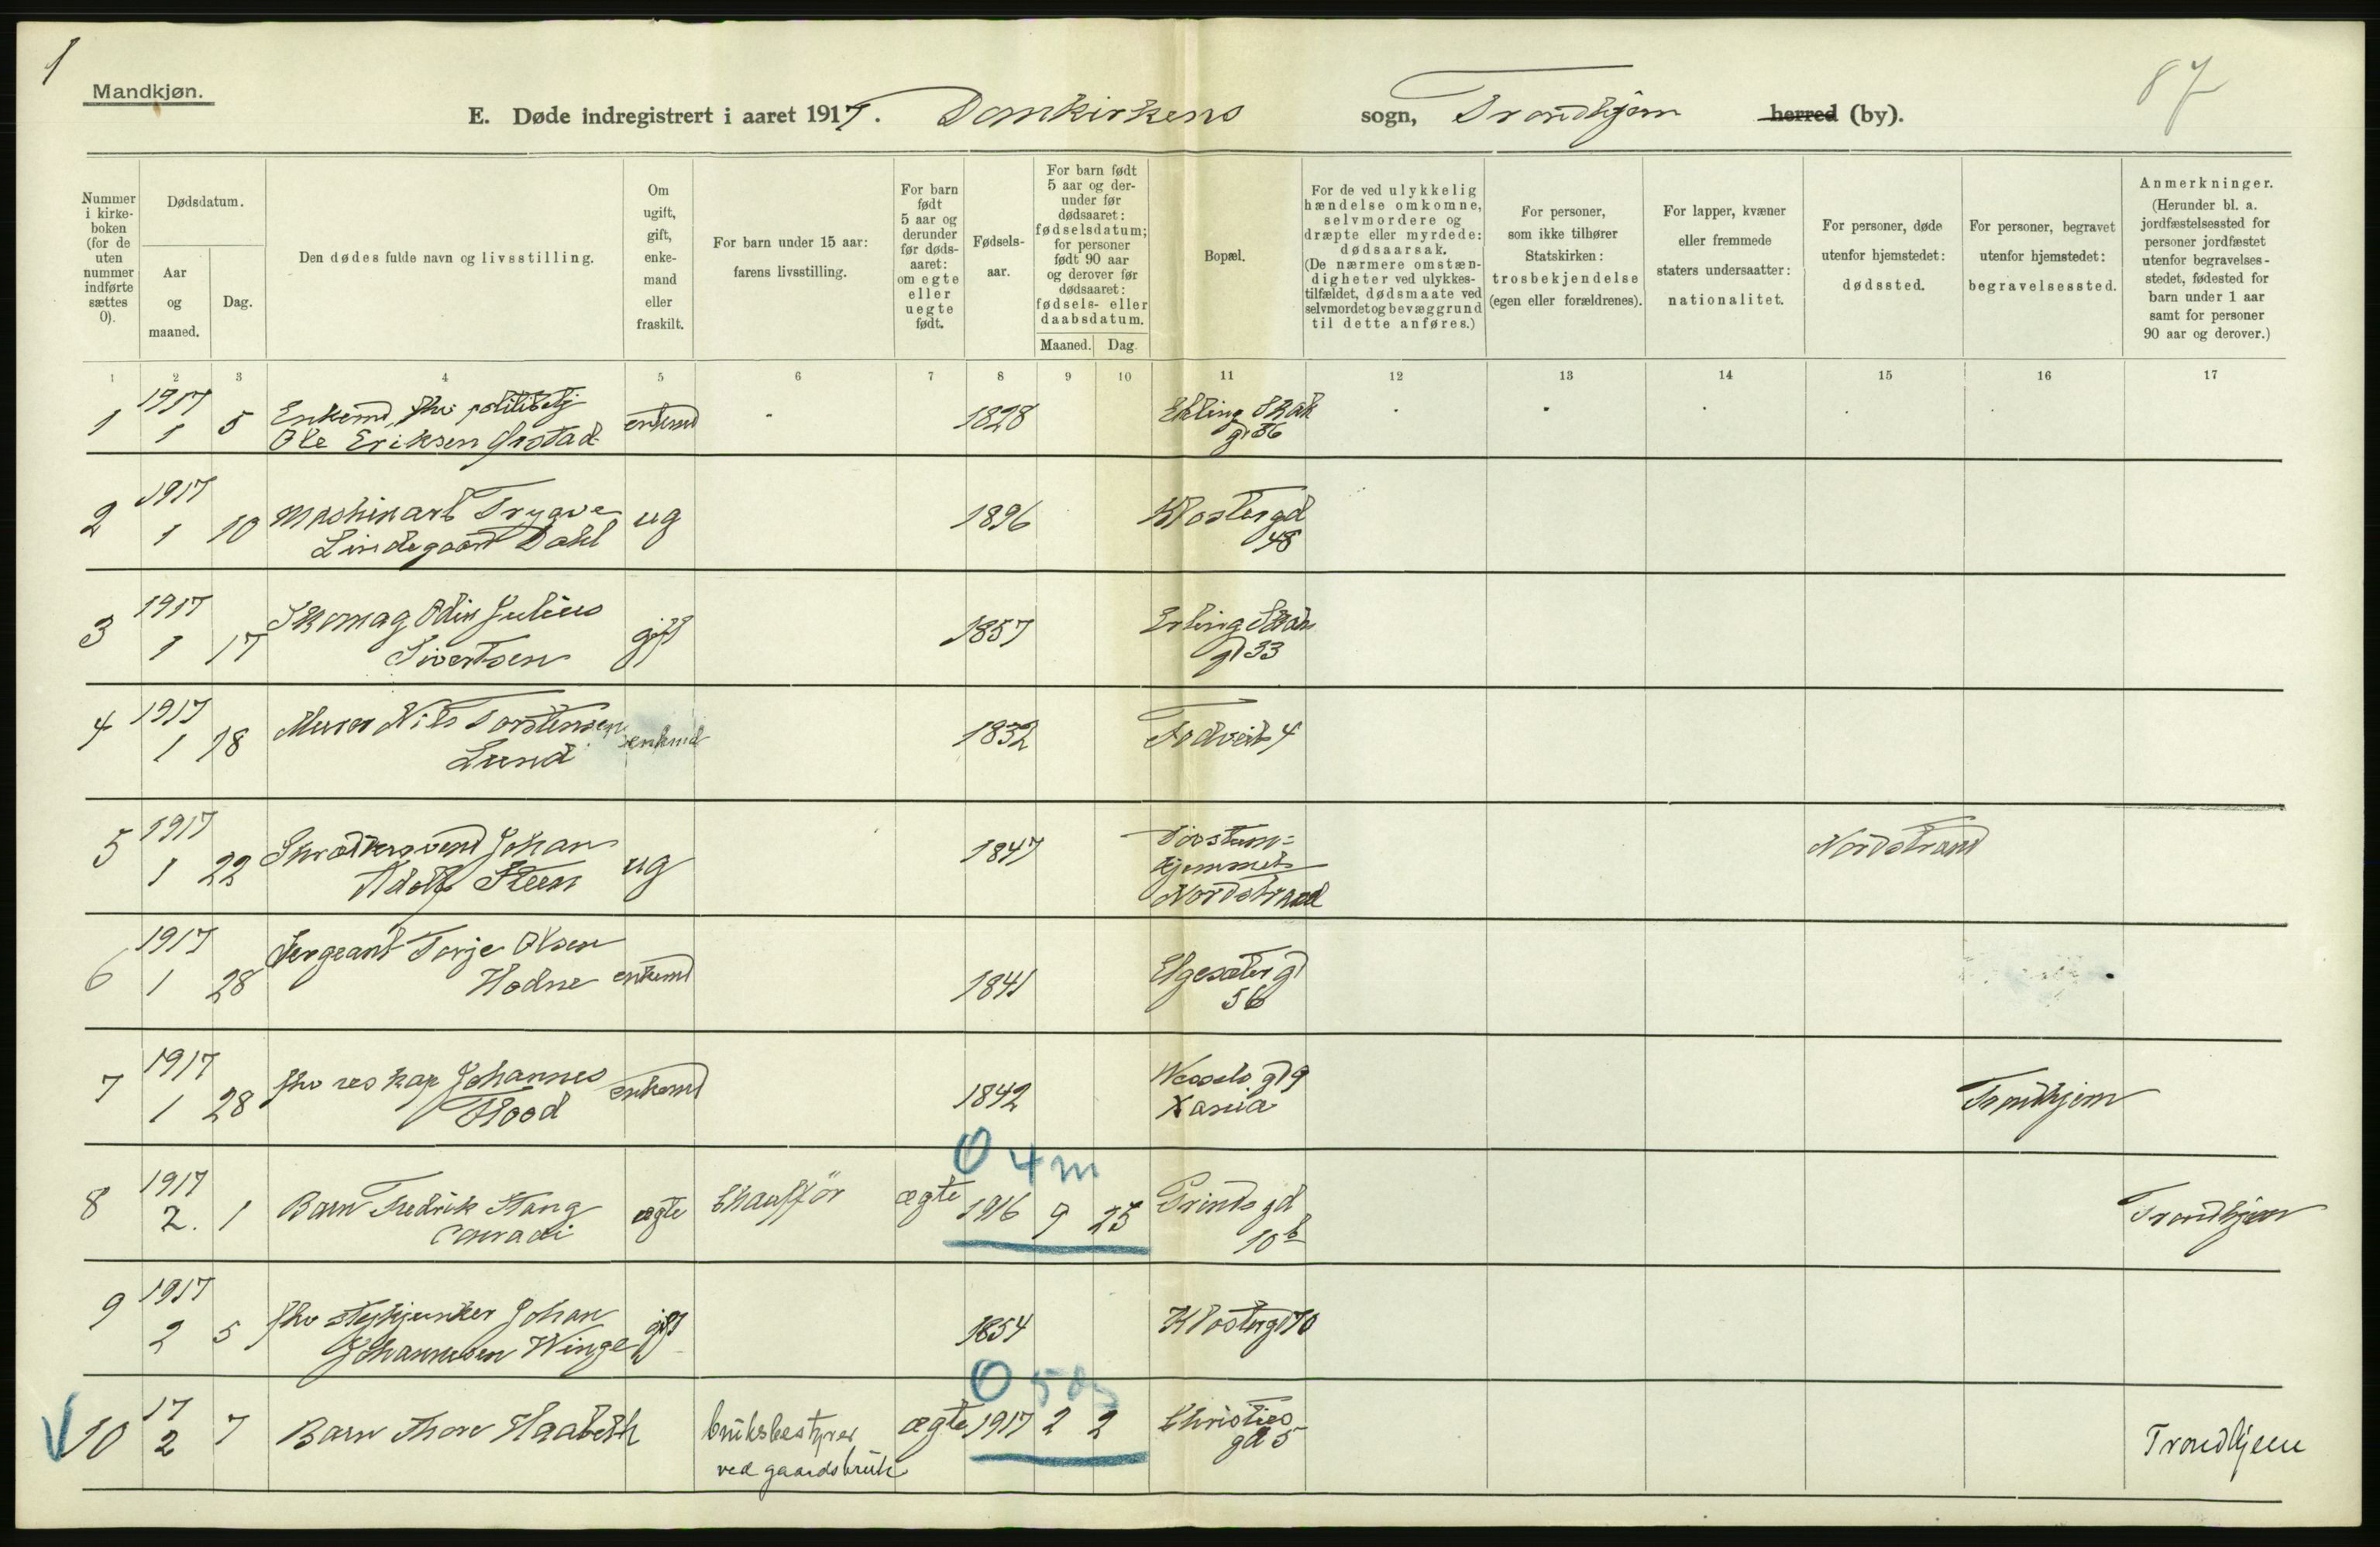 1
Mandkjøn.
87
E. Døde indregistrert i aaret 1917. Domkirkens sogn, Trondhjem herred (by).
Nummer i kirke-boken (for de uten nummer indførte sættes 0).
Dødsdatum.
Aar og maaned.
Dag.
Den dødes fulde navn og livsstilling.
Om ugift, gift, enke-mand eller fraskilt.
For barn under 15 aar: farens livsstilling.
For barn født 5 aar og derunder før døds-aaret: om egte eller uegte født.
Fødsels-aar.
For barn født 5 aar og der-under før dødsaaret: fødselsdatum; for personer født 90 aar og derover før dødsaaret: fødsels- eller daabsdatum.
Maaned. Dag.
Bopæl.
For de ved ulykkelig hændelse omkomne, selvmordere og dræpte eller myrdede: dødsaarsak. (De nærmere omstæn-digheter ved ulykkes-tilfældet, dødsmaate ved selvmordet og bevæggrund til dette anføres.)
For personer, som ikke tilhører Statskirken: trosbekjendelse (egen eller forældrenes).
For lapper, kvæner eller fremmede staters undersaatter: nationalitet.
For personer, døde utenfor hjemstedet: dødssted.
For personer, begravet utenfor hjemstedet: begravelsessted.
Anmerkninger. (Herunder bl. a. jordfæstelsessted for personer jordfæstet utenfor begravelses-stedet, fødested for barn under 1 aar samt for personer 90 aar og derover.)
1 2 3 4 5 6 7 8 9 10 11 12 13 14 15 16 17
1 1917 1 5 Enkemd, fhv politibetj
Ole Eriksen enkemd 1828 Erling Skak
gd 36
2 1917 1 10 Maskinarb Trygve
Lindegaard Dahl ug 1896 Klostergd
48
3 1917 1 17 Skomag Odin Julius
Sivertsen gift 1857 Erling Skak
gd 33
4 1917 1 18 Murer Nils Torstensen
Lund enkemd 1832 4
5 1917 1 22 Skræddersvend Johan
Adolf Steen ug 1847
hjemmet
Nordstrand Nordstrand
6 1917 1 28 Sergeant Torje Olsen
Hodne enkemd 1841 Elgesæter gd
56
7 1917 1 28 fhv res kap Johannes
Flood enkemd 1842 Wessels gd 9
Xania Trondhjem
0 4 m
8 1917 2. 1 Barn Fredrik Stang
Conradi ægte Chauffør ægte 1916 9 25 Prinds gd
10 b Trondhjem
9 1917 2 5 fhv stykjunker Johan
Johannesen Winge gift 1854 Klostergd 70
0 5 d
10 17 2 7 Barn Thore Haabeth bruksbestyrer
ved gaardsbruk ægte 1917 2 2 Christies
gd 5 Trondhjem